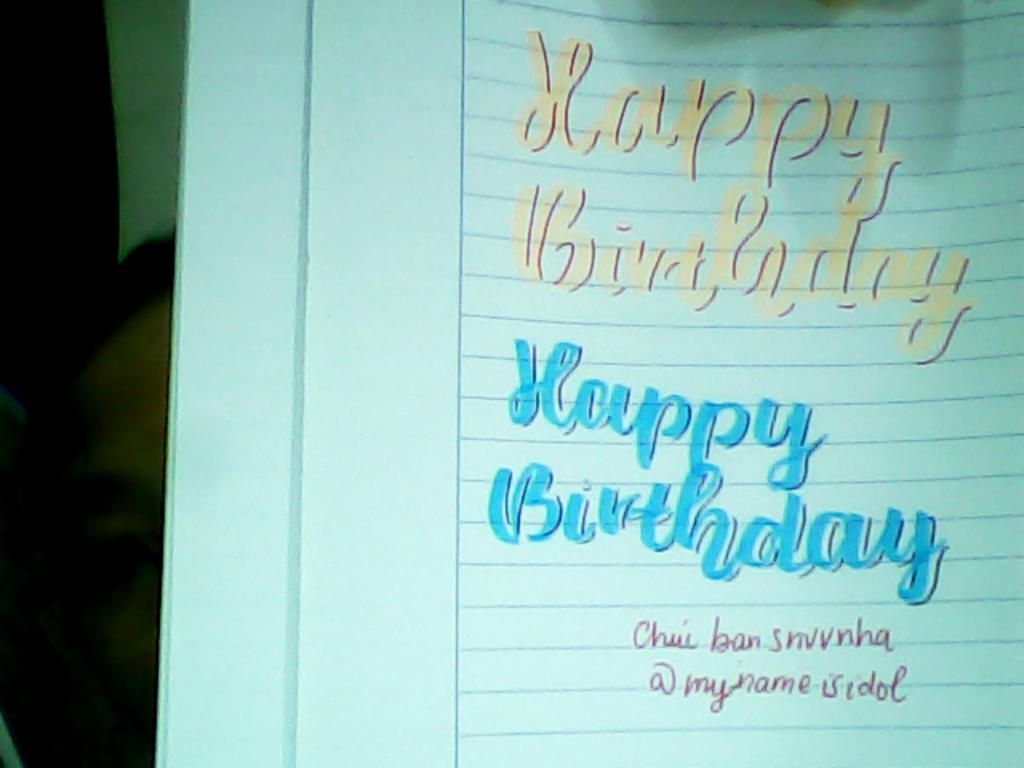 Happy
Birthday
Happy
Birthday
Chúi ban snvvnha
@my name is idol